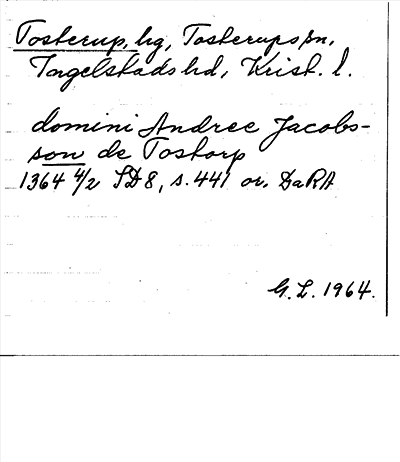 Tosterup, hg, Tosterups sn,
Ingelstads hd, Krist. l.
domini Andree Jacobs-
son de Tostorp
1364 4/2 SD 8, s. 441 or. DaRA
G. L. 1964.